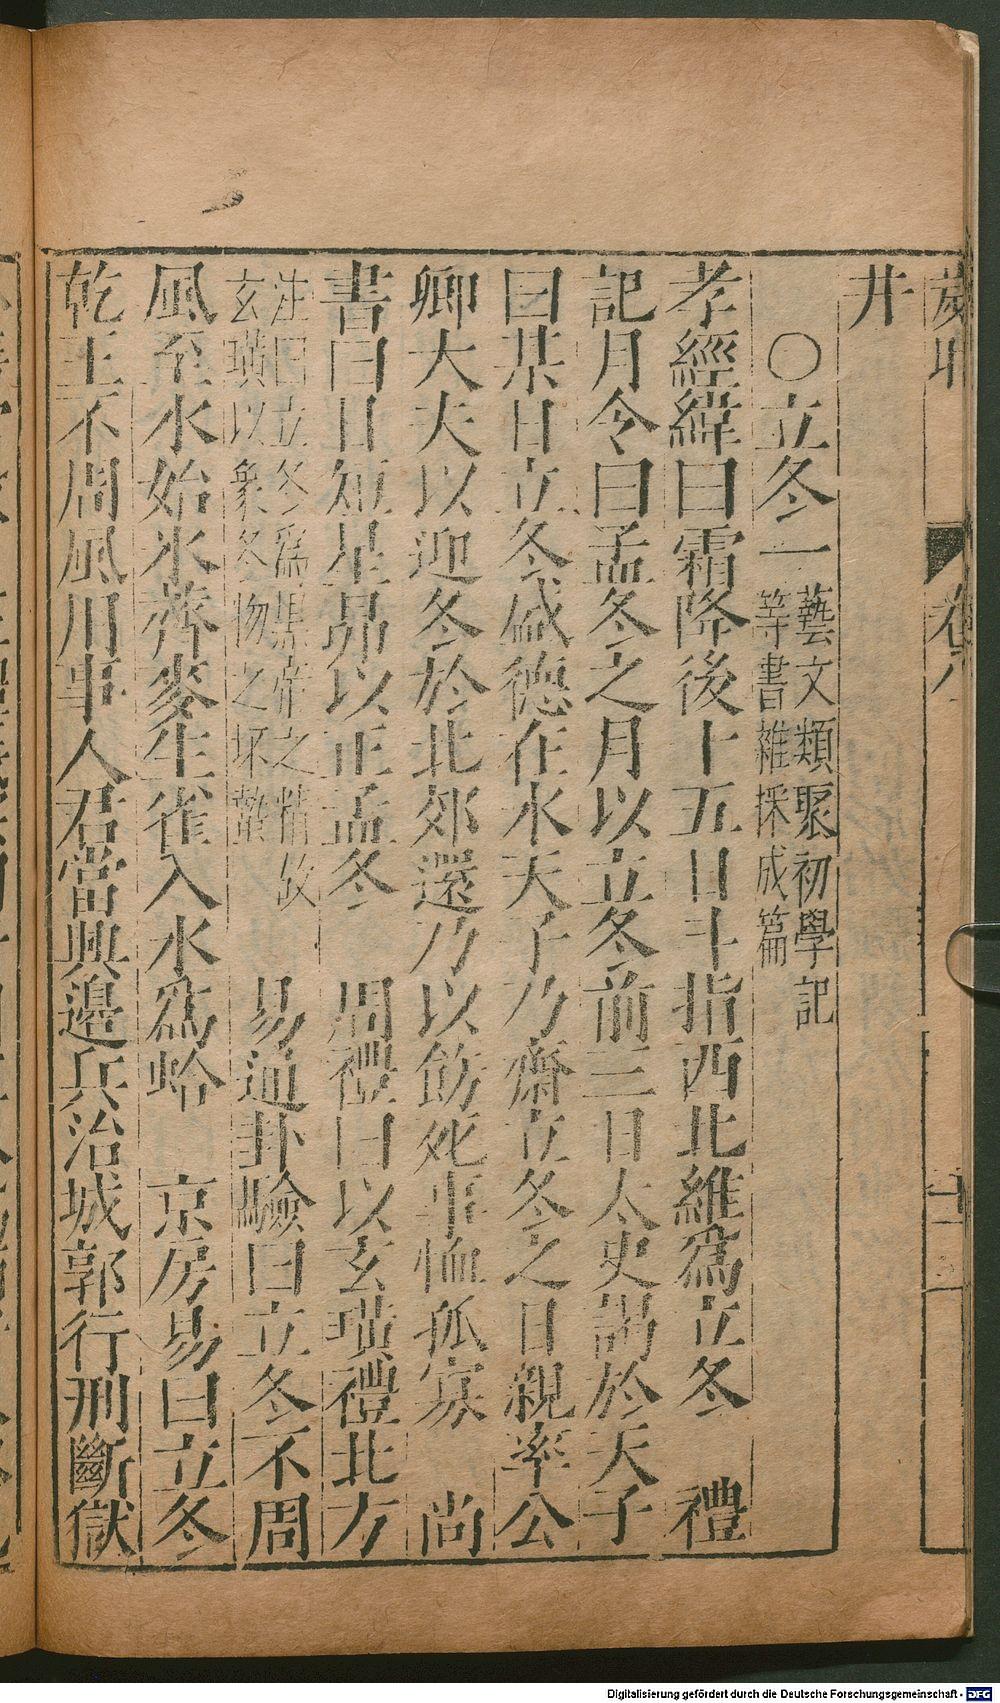 歲時
卷八
井
○立冬一藝文類聚初學記
等書雜採成篇
孝經緯曰霜降後十五日斗指西北維爲立冬 禮
記月令曰孟冬之月以立冬前三日太史謁於天子
曰某日立冬盛德在水天子乃齋立冬之日親率公
卿大夫以迎冬於北郊還乃以飭死事恤孤寡 尚
書曰日短星昴以正孟冬 周禮曰以玄璜禮北方
注曰立冬爲黑帝之精故
玄璜以象冬物之坏蟄 易通卦驗曰立冬不周
風至水始氷薺麥生雀入水爲蛤 京房易曰立冬
乾王不周風用事人君當興邉兵治城郭行刑斷獄
Digitalisierung gefördert durch die Deutsche Forschungsgemeinschaft - DFG